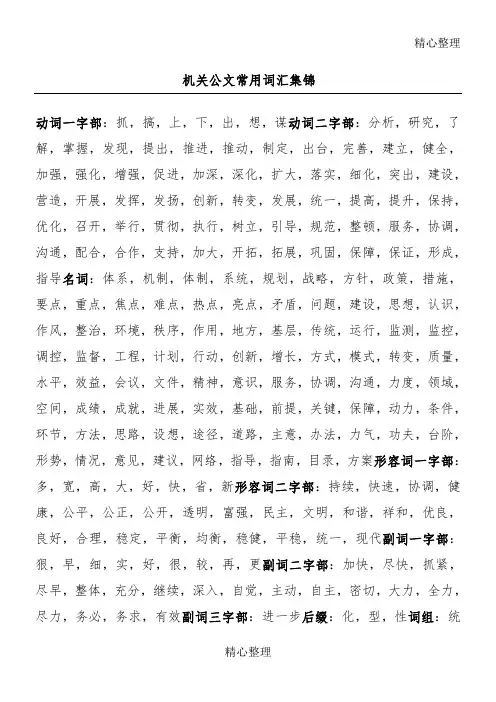 精心整理
机关公文常用词汇集锦
动词一字部：抓，搞，上，下，出，想，谋动词二字部：分析，研究，了
解，掌握，发现，提出，推进，推动，制定，出台，完善，建立，健全，
加强，强化，增强，促进，加深，深化，扩大，落实，细化，突出，建设，
营造，开展，发挥，发扬，创新，转变，发展，统一，提高，提升，保持，
优化，召开，举行，贯彻，执行，树立，引导，规范，整顿，服务，协调，
沟通，配合，合作，支持，加大，开拓，拓展，巩固，保障，保证，形成，
指导名词：体系，机制，体制，系统，规划，战略，方针，政策，措施，
要点，重点，焦点，难点，热点，亮点，矛盾，问题，建设，思想，认识，
作风，整治，环境，秩序，作用，地方，基层，传统，运行，监测，监控，
调控，监督，工程，计划，行动，创新，增长，方式，模式，转变，质量，
水平，效益，会议，文件，精神，意识，服务，协调，沟通，力度，领域，
空间，成绩，成就，进展，实效，基础，前提，关键，保障，动力，条件，
环节，方法，思路，设想，途径，道路，主意，办法，力气，功夫，台阶，
形势，情况，意见，建议，网络，指导，指南，目录，方案形容词一字部：
多，宽，高，大，好，快，省，新形容词二字部：持续，快速，协调，健
康，公平，公正，公开，透明，富强，民主，文明，和谐，祥和，优良，
良好，合理，稳定，平衡，均衡，稳健，平稳，统一，现代副词一字部：
狠，早，细，实，好，很，较，再，更副词二字部：加快，尽快，抓紧，
尽早，整体，充分，继续，深入，自觉，主动，自主，密切，大力，全力，
尽力，务必，务求，有效副词三字部：进一步后缀：化，型，性词组：统
精心整理